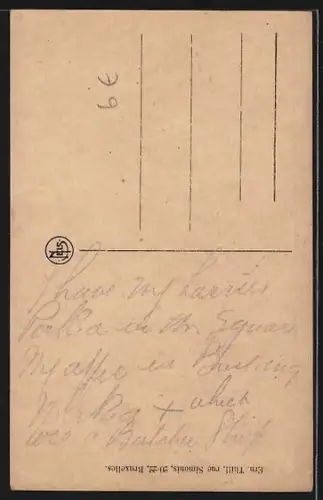 6€
NELS
I have my Lorries
Parked in the Square
My office in Building
which
was a Butcher Shop
Ern. Thill, rue Simonis, 20-22, Bruxelles.